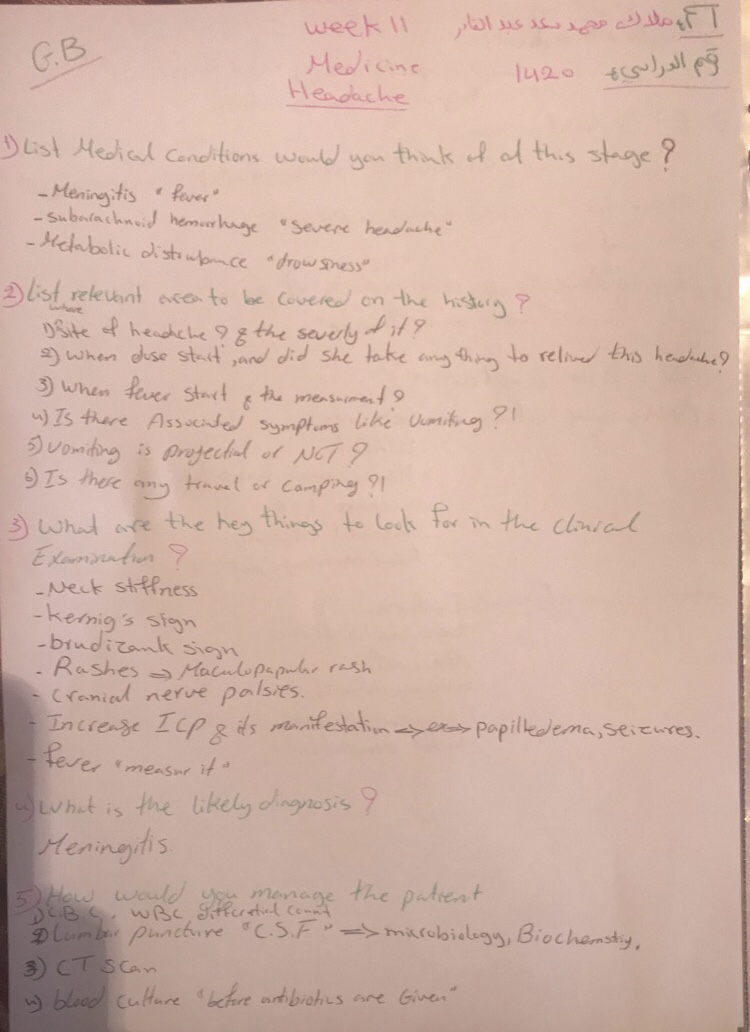 G.B
week 11
ملاك محمد سعد عبد القادر
Medicine
رقم الدراسي
1420
Headache
1) List Medical Conditions would you think of at this stage?
- Meningitis "fever"
- subarachnoid hemorrhage "severe headache"
- Metabolic distrubance "drowsiness"
2) List relevant area to be covered on the history?
where
1) Site of headche? & the severly of it?
2) when dose start, and did she take any thing to relived this headache?
3) when fever start & the measurment?
4) Is there Associated symptoms like vomiting?!
5) vomiting is projectial or NOT?
6) Is there any travel or camping?!
3) What are the key things to look for in the clinical
Examination?
- Neck stiffness
- kernig's sign
- brudizank sign
- Rashes => Maculopapular rash
- cranial nerve palsies.
- Increase ICP & its manifestation => ex => papilledema, seizures.
- fever "measur it"
4) What is the likely diagnosis?
Meningitis.
5) How would you manage the patient
1) C.B.C, WBC differetial count
2) Lumbar puncture "C.S.F" => microbiology, Biochemstiy,
3) CT Scan
4) blood culture "before antibiotics are Given"